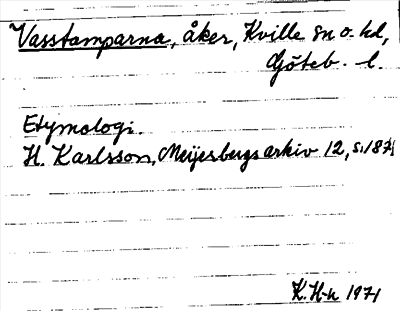 Vasstamparna, åker, Kville sn o. hd,
Göteb. l.
Etymologi.
H. Karlsson, Meijerbergs arkiv 12, s. 187
K. H-k 1971